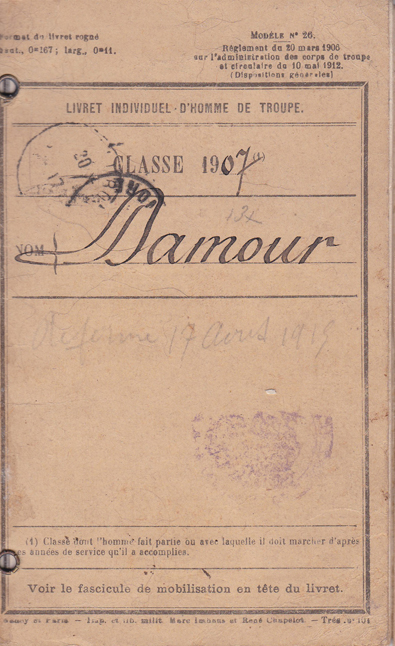 Format du livret rogné
haut., 0m167 ; larg., 0m11.
MODÈLE N° 26.
Règlement du 20 mars 1906
sur l'administration des corps de troupe
et circulaire du 10 mai 1912.
(Dispositions générales)
LIVRET INDIVIDUEL D'HOMME DE TROUPE.
CLASSE 1907 (1)
NOM Damour
Réformé 17 Août 1915
(1) Classe dont l'homme fait partie ou avec laquelle il doit marcher d'après
les années de service qu'il a accomplies.
Voir le fascicule de mobilisation en tête du livret.
Nancy et Paris — Imp. et lib. milit. Marc Imhaus et René Chapelot. — Trés. n° 104